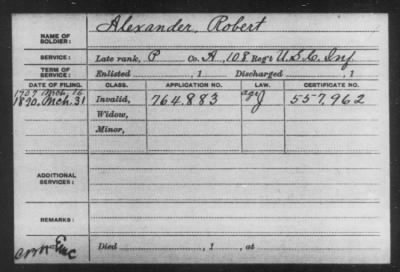 Alexander, Robert
NAME OF SOLDIER:
SERVICE: Late rank, P Co. A, 108 Reg't U.S.C. Inf.
TERM OF SERVICE: Enlisted , 1 Discharged , 1
DATE OF FILING. CLASS. APPLICATION NO. LAW. CERTIFICATE NO.
1907 Mch. 16
1890. Mch. 31 Invalid, 764.883 age J 557,962
Widow,
Minor,
ADDITIONAL SERVICES:
REMARKS:
Died , 1 , at